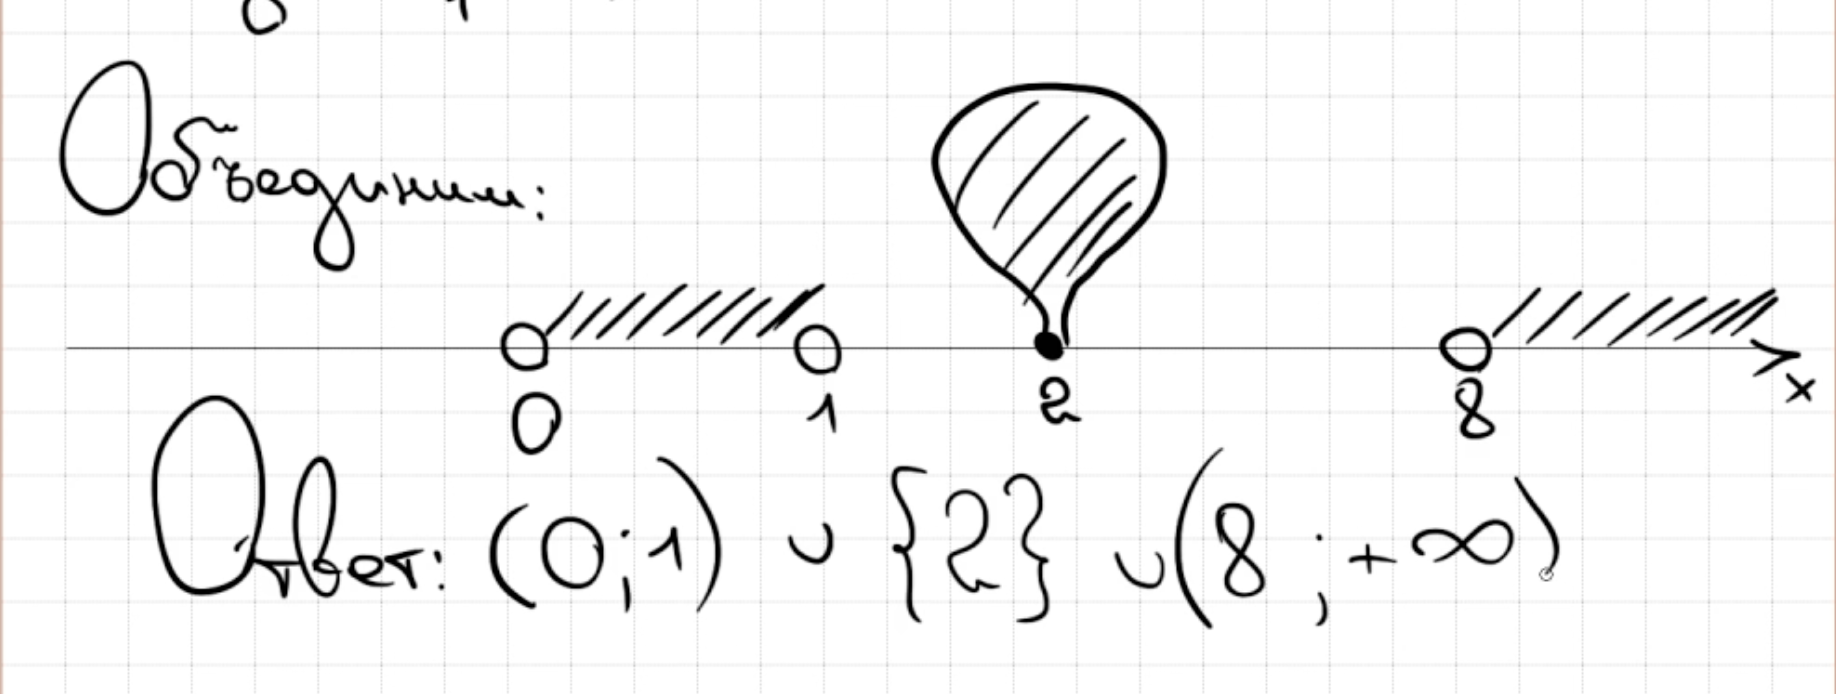 Объединим:
0 1 2 8 x
Ответ: (0;1) ∪ {2} ∪ (8;+∞)